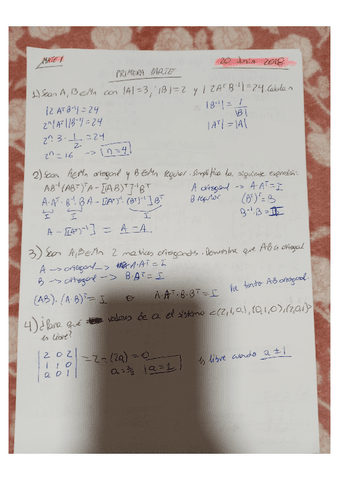 MATE I
PRIMERA PARTE
20 Junio 2018
1) Sean A, B∈Mn con |A|=3, |B|=2 y |2AᵀB⁻¹|=24. Calcula n
|2AᵀB⁻¹|=24
2ⁿ|Aᵀ||B⁻¹|=24
2ⁿ·3·1/2=24
2ⁿ=16 → n=4
|B⁻¹|=1/|B|
|Aᵀ|=|A|
2) Sean A∈Mn ortogonal y B∈Mn regular. Simplifica la siguiente expresión:
AB⁻¹(ABᵀ)ᵀA-[(AB)ᵀ]⁻¹Bᵀ
A ortogonal → A·Aᵀ=I
B regular
(Bᵀ)ᵀ=B
B⁻¹·B=I
I I I
A-[(Aᵀ)⁻¹] = A-A
3) Sean A, B∈Mn 2 matrices ortogonales. Demuestre que AB es ortogonal
A → ortogonal → A·Aᵀ=I
B → ortogonal → B·Bᵀ=I
(AB)·(A·B)ᵀ=I
A·Aᵀ·B·Bᵀ=I
Por tanto AB ortogonal
4) ¿Para qué valores de a el sistema <(2,1,a),(0,1,0),(2,0,1)>
es libre?
2 0 2
1 1 0 =2-(2a)=0
a 0 1
a=1
Es libre cuando a≠1